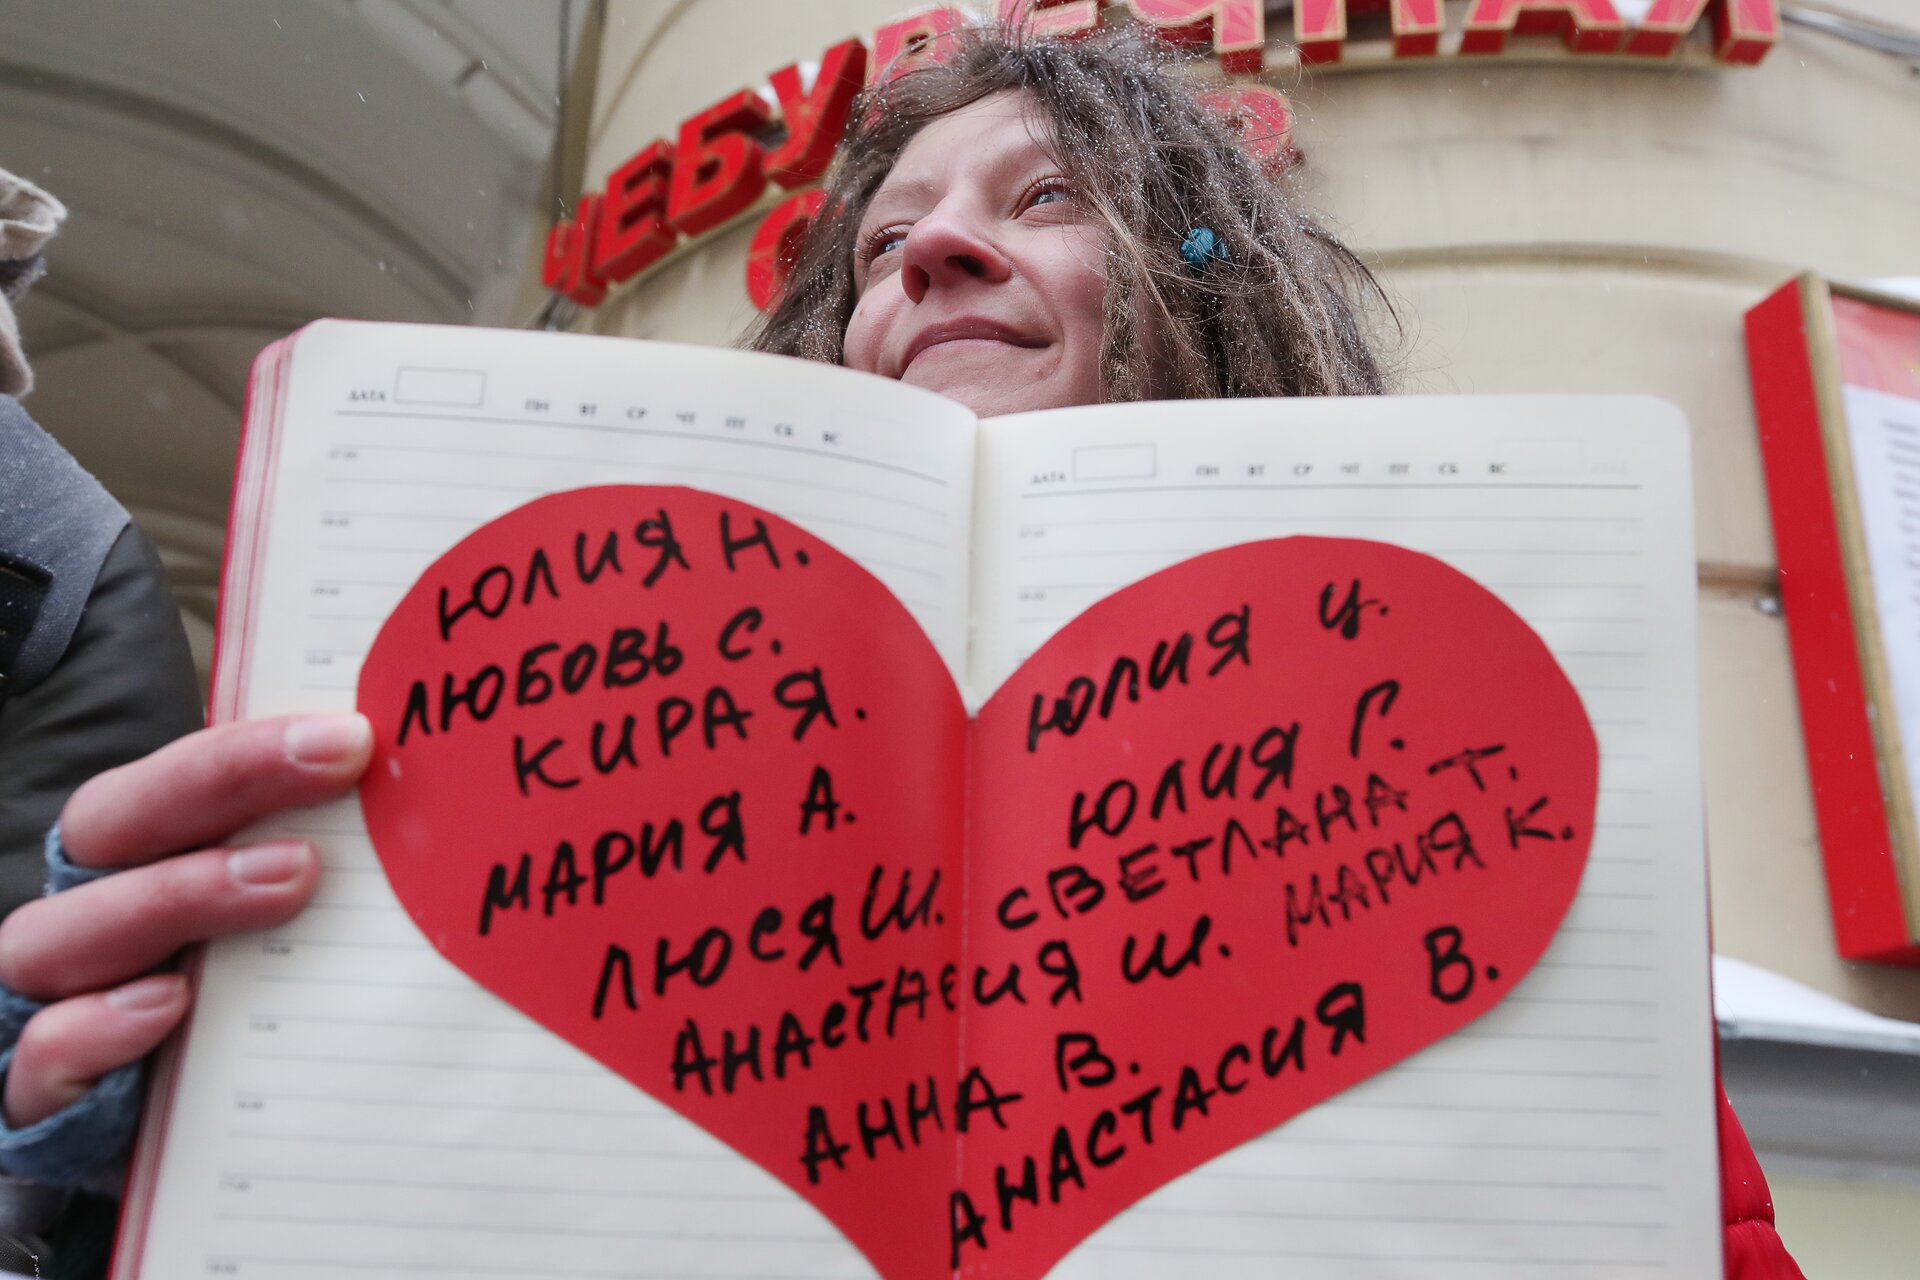 ЧЕБУРЕЧНАЯ
ДАТА ПН ВТ СР ЧТ ПТ СБ ВС
ЮЛИЯ Н.
ЛЮБОВЬ С.
КИРА Я.
МАРИЯ А.
ЛЮСЯ Ш.
АНАСТАСИЯ Ш.
АННА В.
АНАСТАСИЯ В.
ДАТА ПН ВТ СР ЧТ ПТ СБ ВС
ЮЛИЯ Ц.
ЮЛИЯ Г.
СВЕТЛАНА Т.
МАРИЯ К.